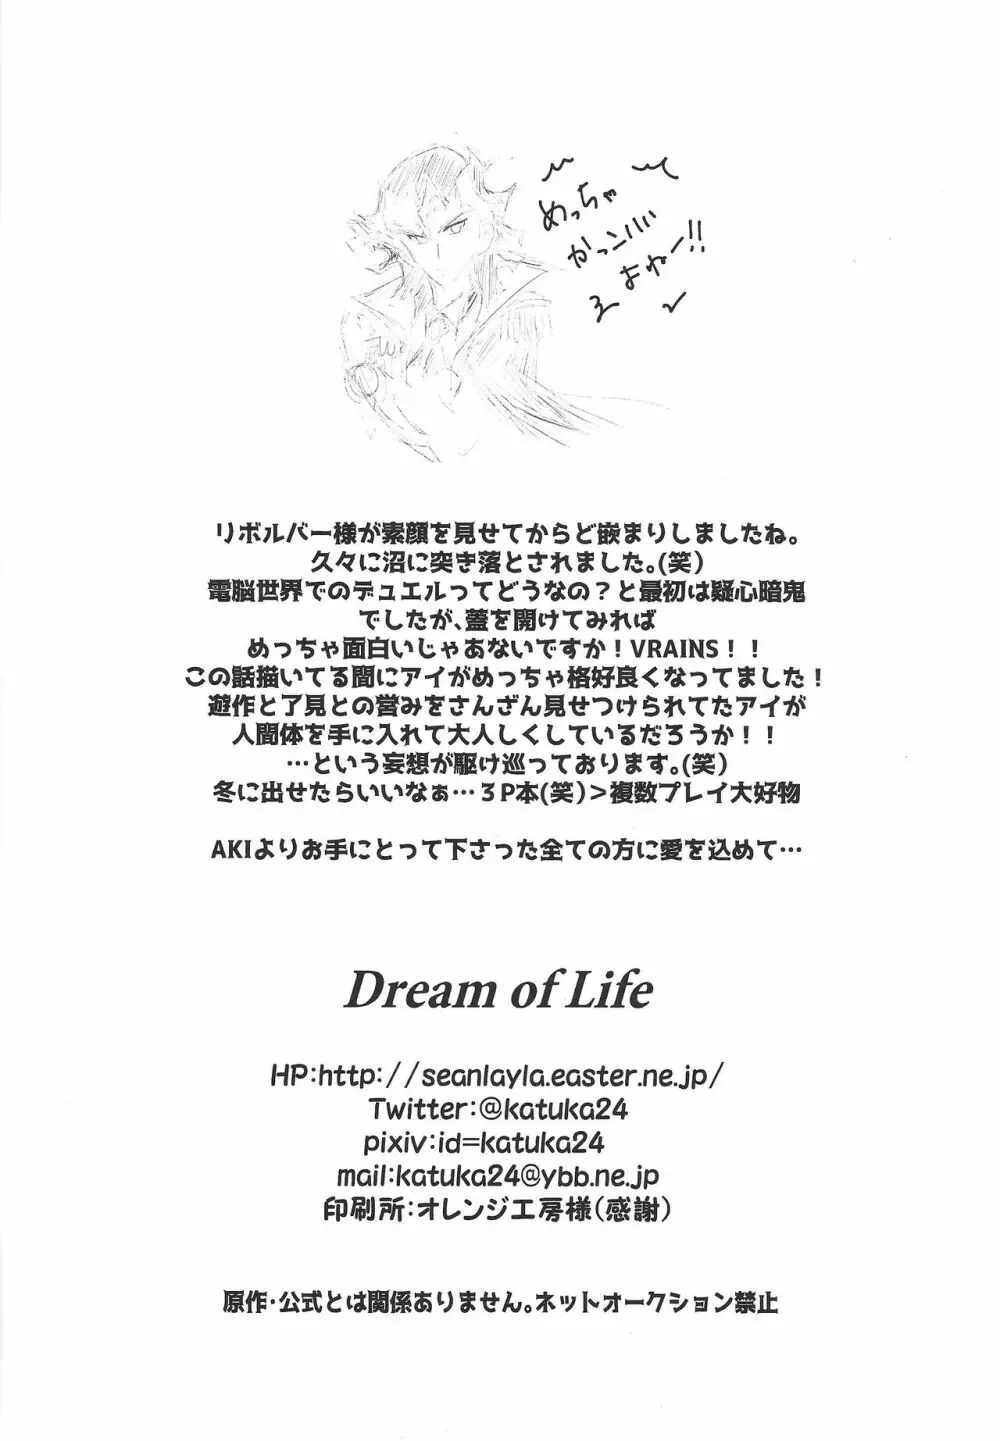 めっちゃ
かっこいい
よねー!!
リボルバー様が素顔を見せてからど嵌まりしましたね。
久々に沼に突き落とされました。(笑)
電脳世界でのデュエルってどうなの？と最初は疑心暗鬼
でしたが、蓋を開けてみれば
めっちゃ面白いじゃあないですか！VRAINS！！
この話描いてる間にアイがめっちゃ格好良くなってました！
遊作と了見との営みをさんざん見せつけられてたアイが
人間体を手に入れて大人しくしているだろうか！！
…という妄想が駆け巡っております。(笑)
冬に出せたらいいなぁ…３P本(笑)＞複数プレイ大好物
AKIよりお手にとって下さった全ての方に愛を込めて…
Dream of Life
HP:http://seanlayla.easter.ne.jp/
Twitter:@katuka24
pixiv:id=katuka24
mail:katuka24@ybb.ne.jp
印刷所：オレンジ工房様(感謝)
原作・公式とは関係ありません。ネットオークション禁止